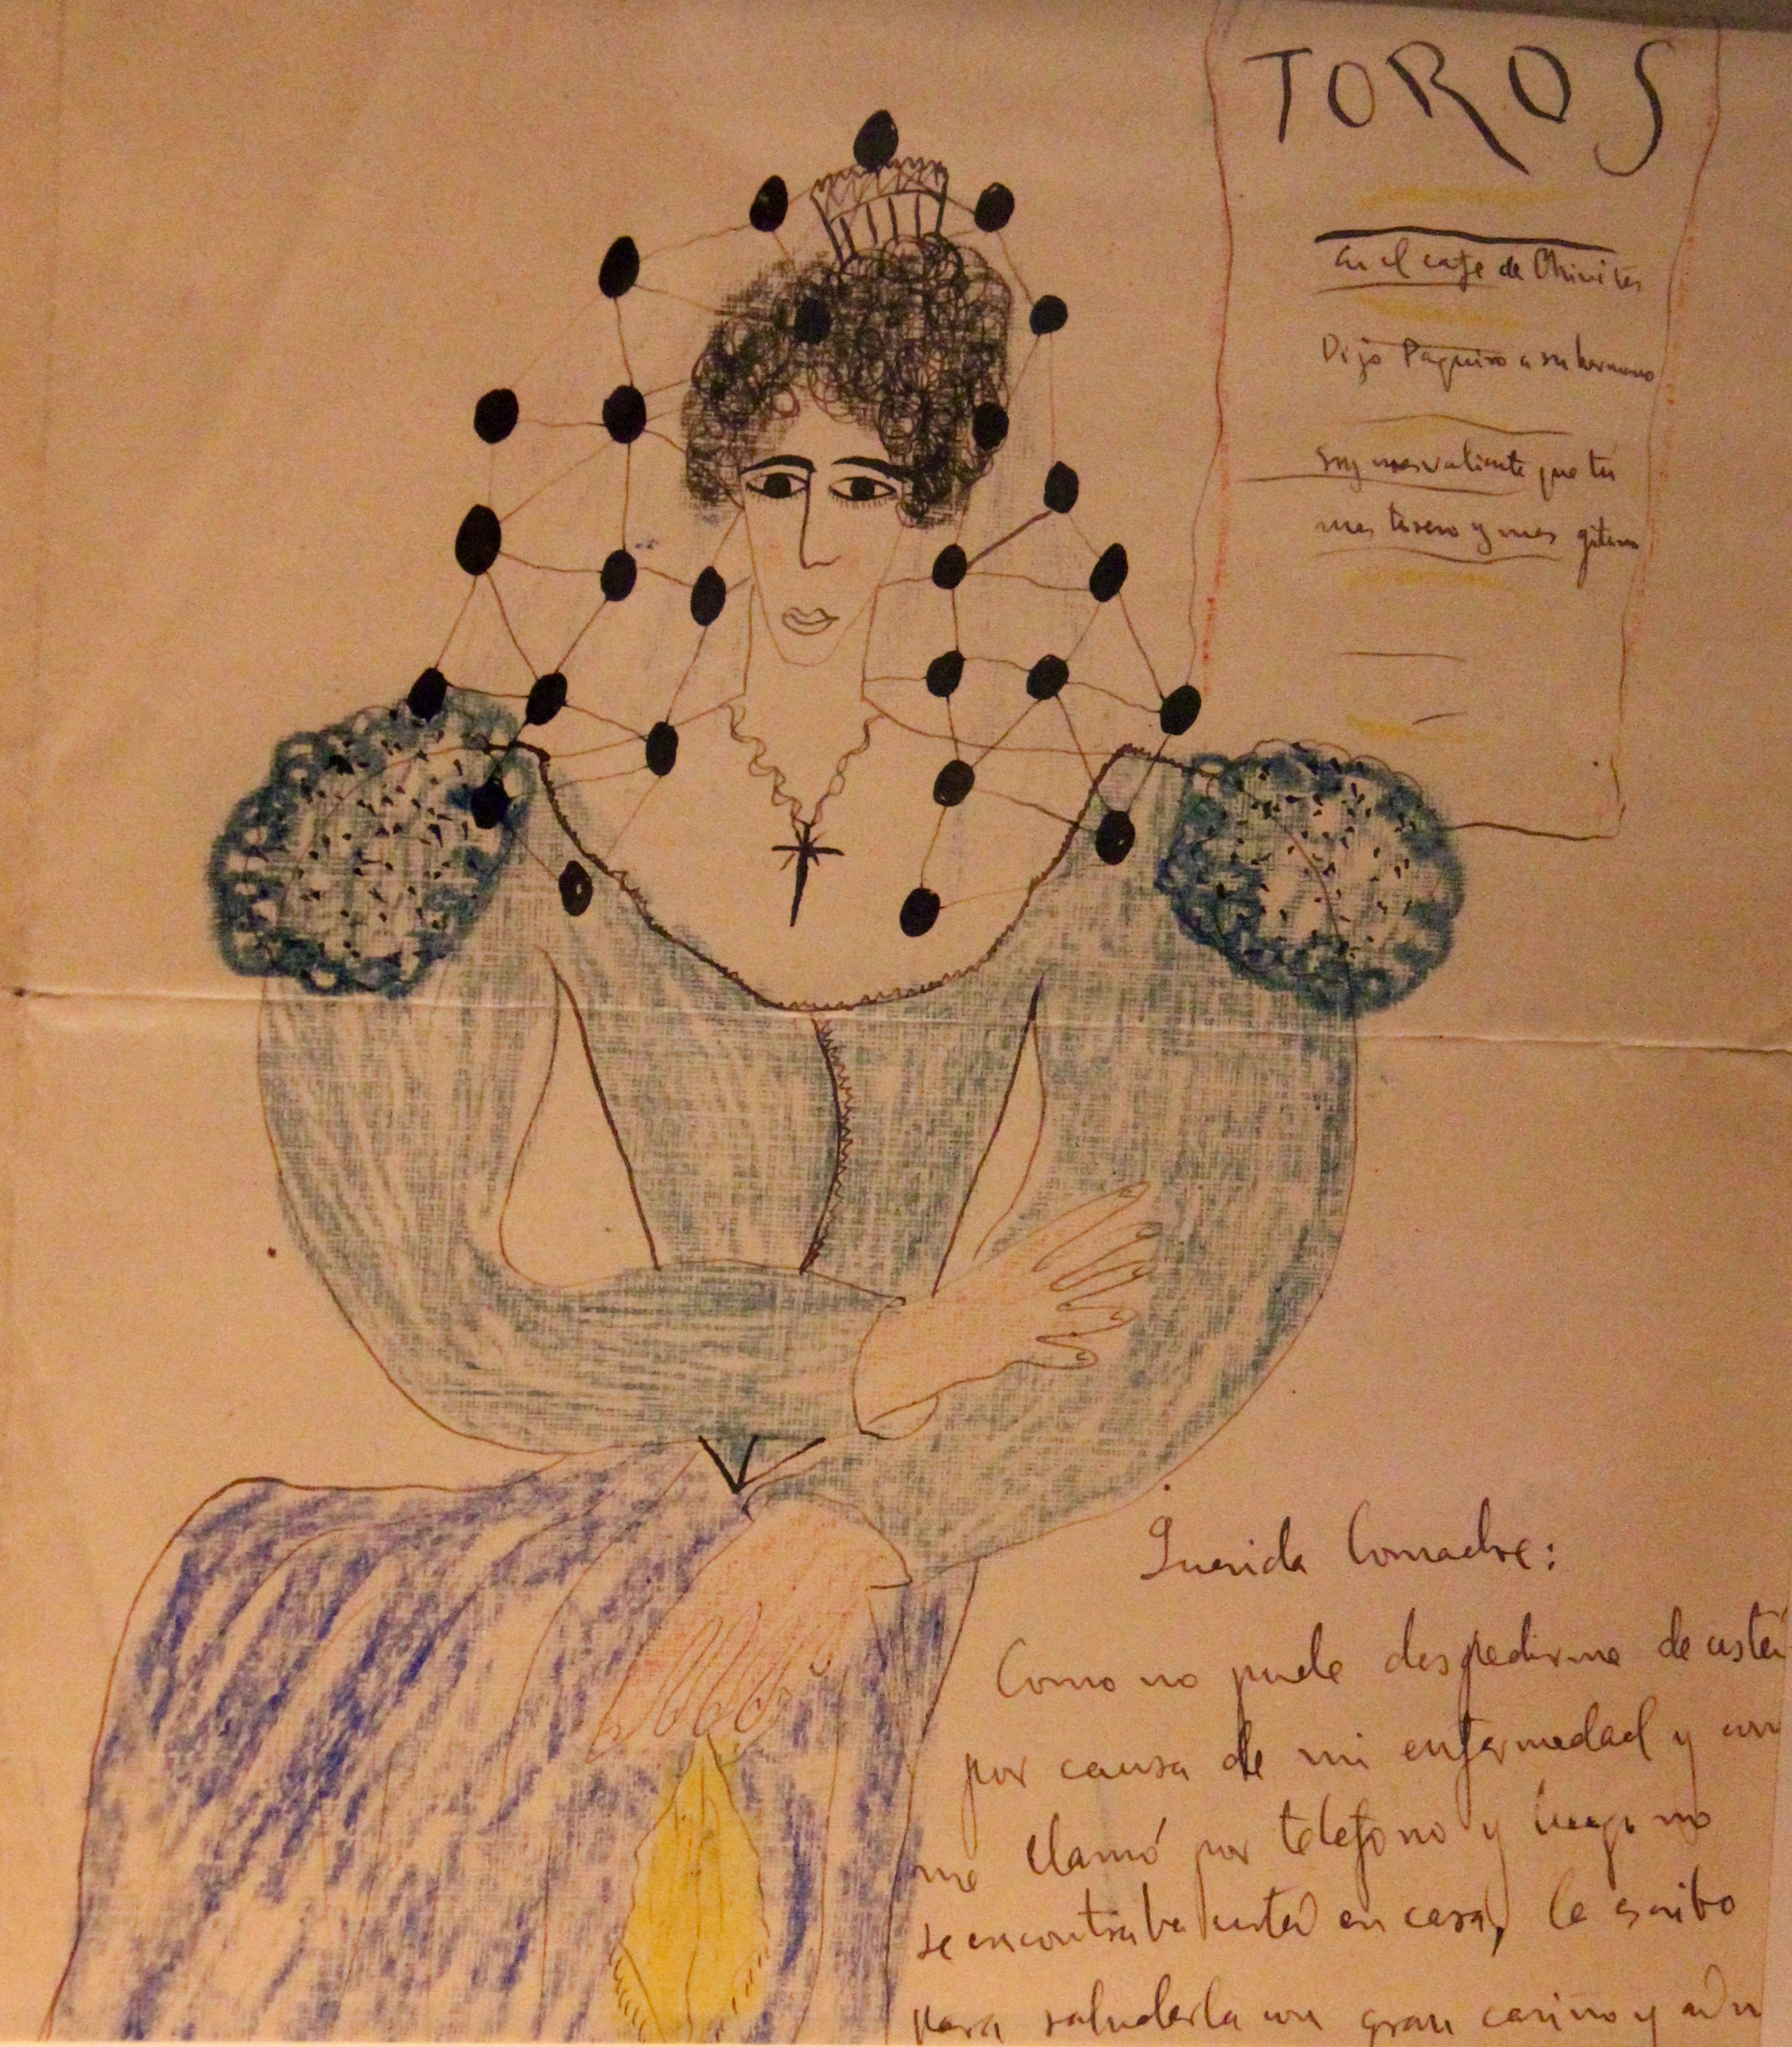 TOROS
en el cafe de Chinitas
Dijo Paquiro a su hermano
soy mas valiente que tu
mas torero y mas gitano
Querida Comadre:
Como no pude despedirme de usted
por causa de mi enfermedad y
me llamó por telefono y luego no
se encontraba usted en casa, le escribo
para saludarla con gran cariño y